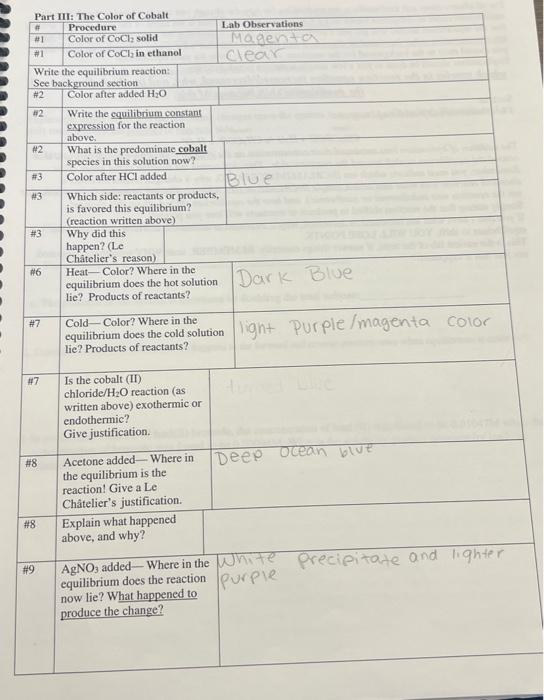 Part III: The Color of Cobalt
# Procedure Lab Observations
#1 Color of CoCl₂ solid Magenta
#1 Color of CoCl₂ in ethanol Clear
Write the equilibrium reaction:
See background section
#2 Color after added H₂O
#2 Write the equilibrium constant
expression for the reaction
above.
#2 What is the predominate cobalt
species in this solution now?
#3 Color after HCl added Blue
#3 Which side: reactants or products,
is favored this equilibrium?
(reaction written above)
#3 Why did this
happen? (Le
Châtelier's reason)
#6 Heat— Color? Where in the
equilibrium does the hot solution
lie? Products of reactants?
Dark Blue
#7 Cold— Color? Where in the
equilibrium does the cold solution
lie? Products of reactants?
light Purple/magenta color
#7 Is the cobalt (II)
chloride/H₂O reaction (as
written above) exothermic or
endothermic?
Give justification.
turned blue
#8 Acetone added— Where in
the equilibrium is the
reaction! Give a Le
Châtelier's justification.
Deep ocean blue
#8 Explain what happened
above, and why?
#9 AgNO₃ added— Where in the
equilibrium does the reaction
now lie? What happened to
produce the change?
White precipitate and lighter
purple